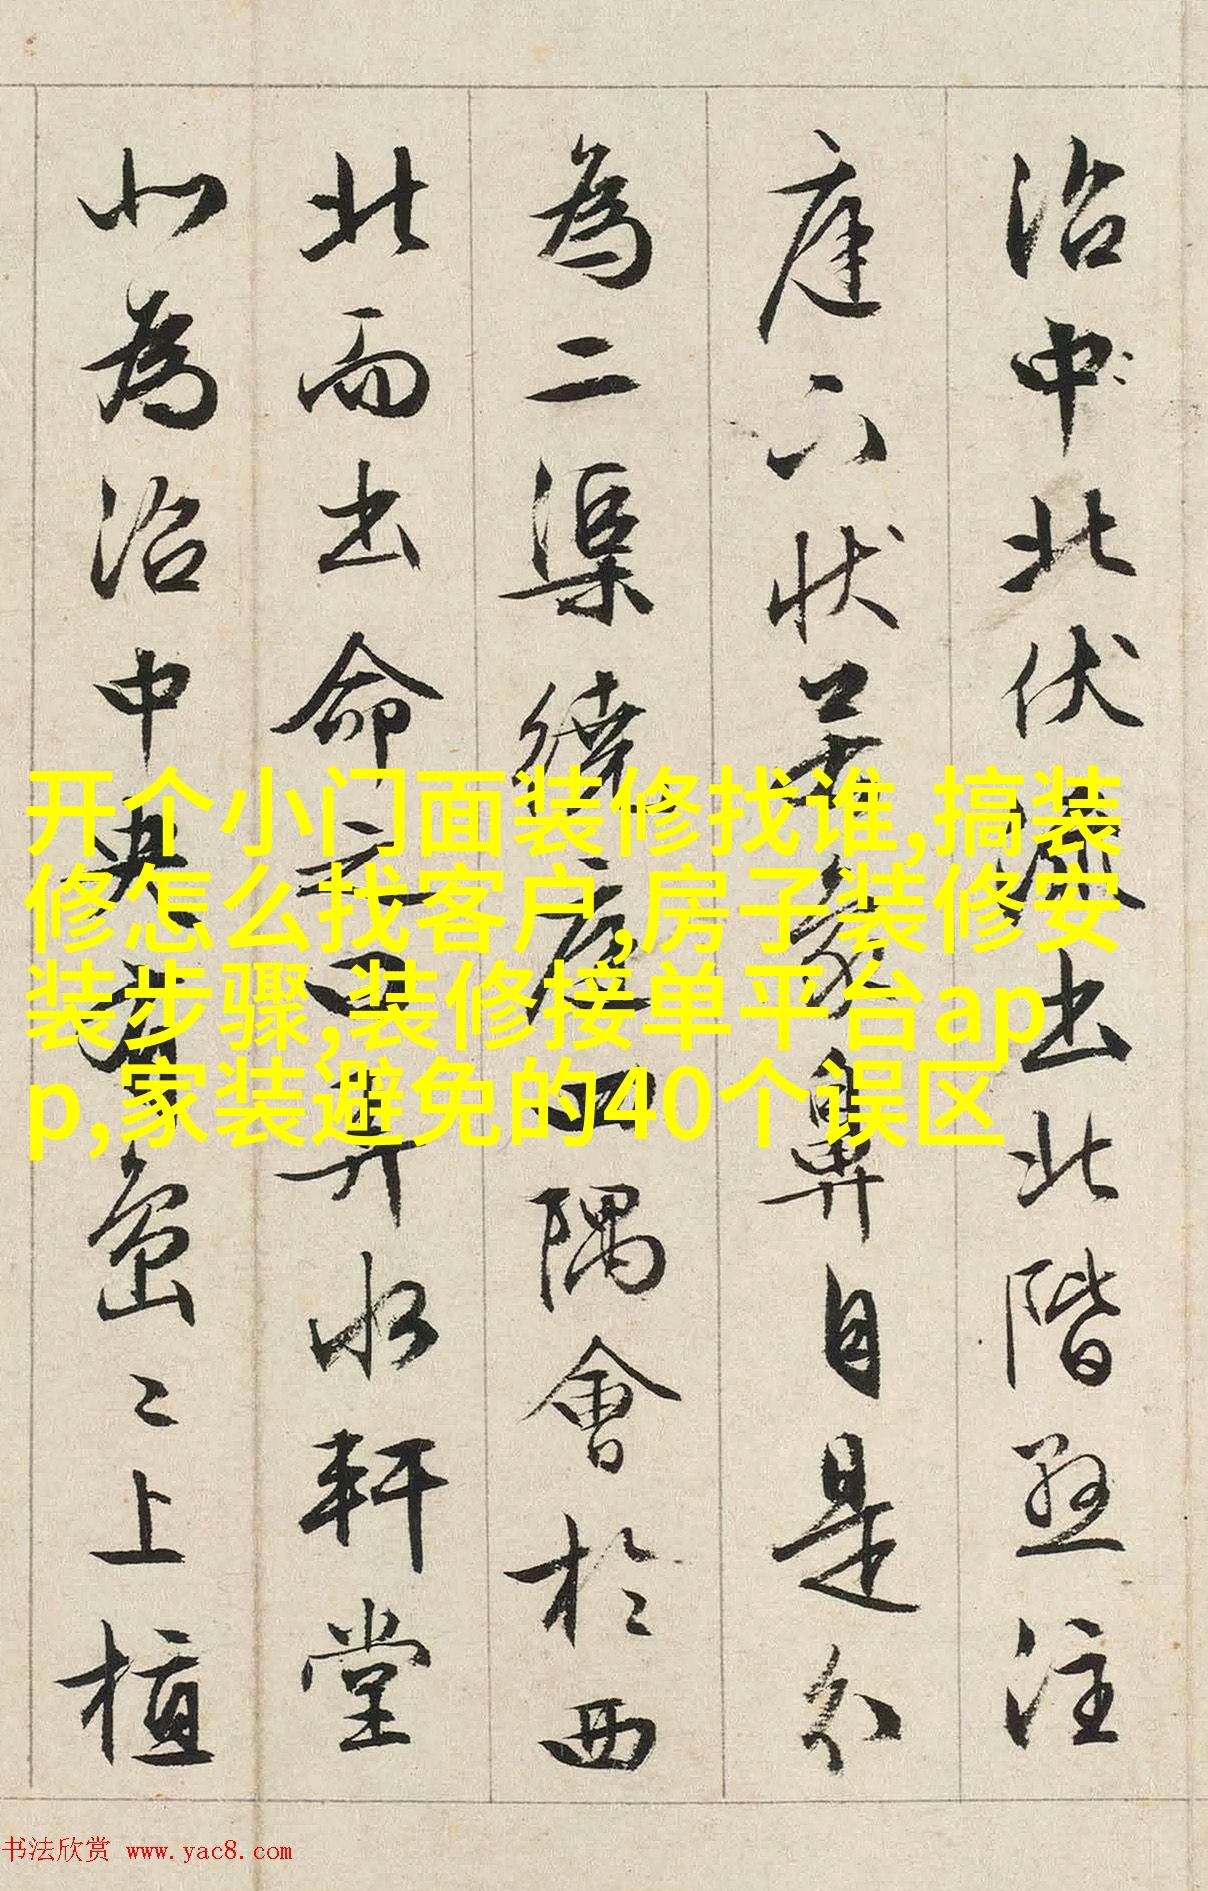 沼中北伏流出北階懸注
庭下状若象鼻自是分
為二渠繞庭四隅會於西
北而出命之曰弄水軒堂
北為沼中央有島島上植
开个小门面装修找谁,搞装
修怎么找客户,房子装修安
装步骤,装修接单平台ap
p,家装避免的40个误区
书法欣赏 www.yac8.com